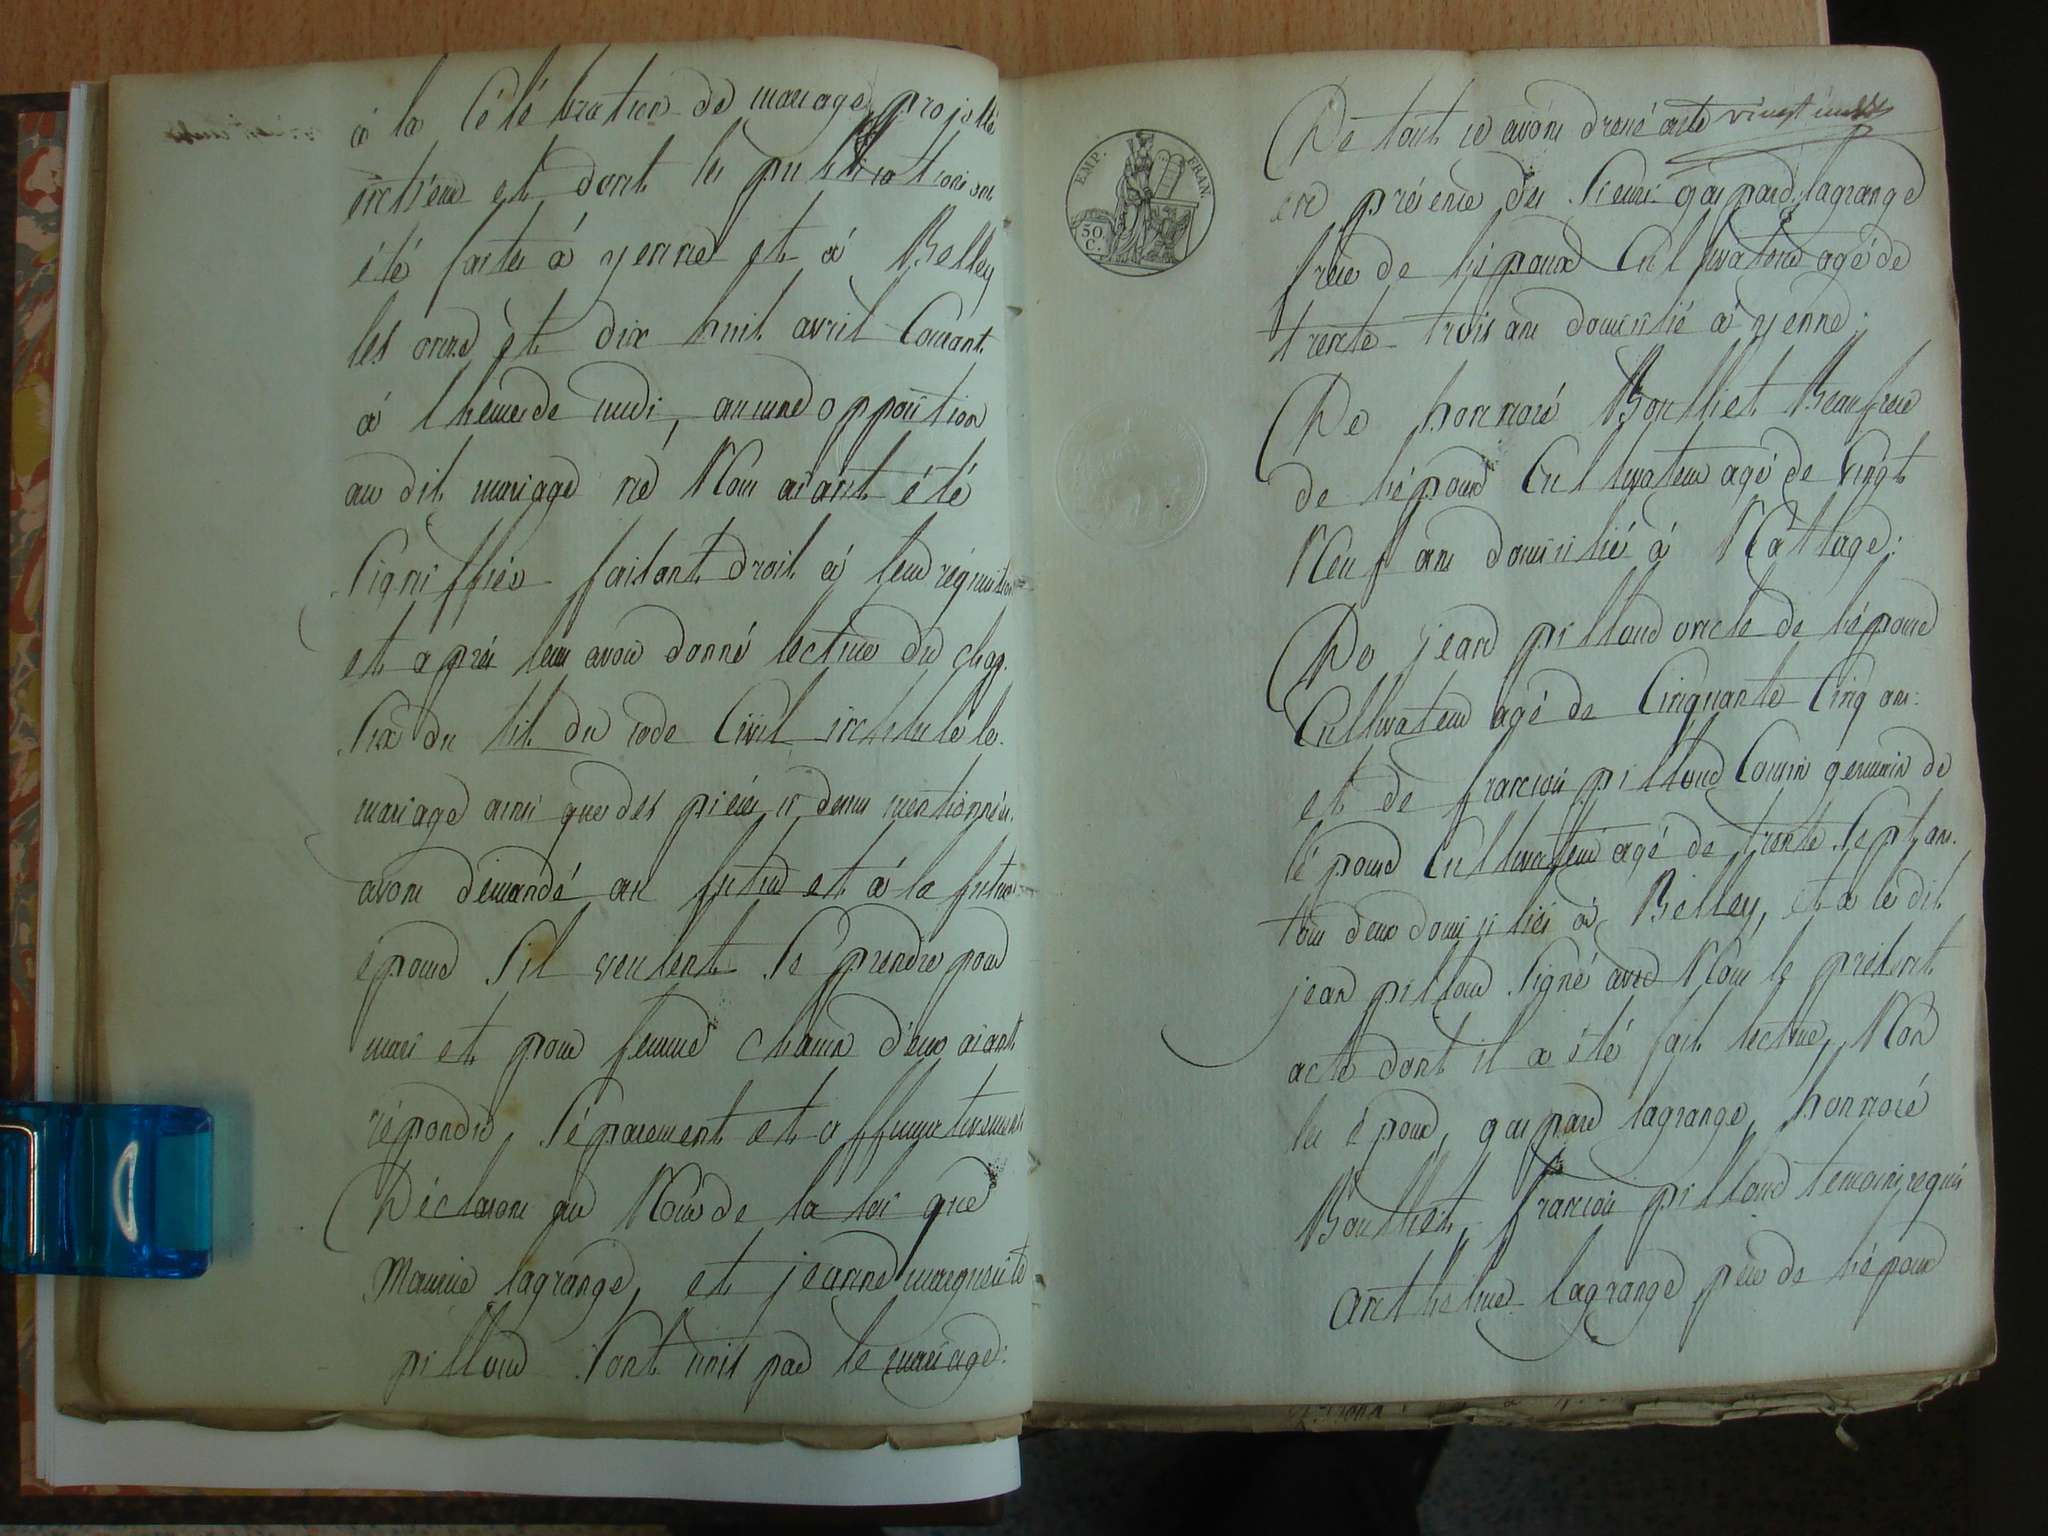 à la Célébration de mariage projetté
entr'eux et dont les publications ont
été faites à yenne et à Belley
les onze et dix huit avril Courant
à l'heure de midi, aucune opposition
au dit mariage ne Nous aiant été
Signiffiée faisant droit à leur réquisition
et après leur avoir donné lecture du chap.
Six du tit. du code Civil intitulé le
mariage ainsi que des pièces ci dessus mentionnées
avons démandé au futur et à la future
épouse S'il veulent Se prendre pour
mari et pour femme chacun d'eux aiant
répondu Séparement et affirmativement
Déclarons au Nom de la loi que
Maurice lagrange, et jeanne marguerite
pilloud Sont unis par le mariage:
EMP. FRAN.
50 C.
De tout ce avons dressé acte vingt
en présence des Sieurs gaspard lagrange
frère de l'époux Cultivateur agé de
trente trois ans domicilié à yenne:
De honnoré Boulliet Beaufrere
de l'époux Cultivateur agé de Vingt
Neuf ans domicilié à Nattage:
De jean pilloud oncle de l'épouse
Cultivateur agé de Cinquante Cinq ans:
et de françois pilloud Cousin germain de
l'épouse Cultivateur agé de trente Sept ans.
tous deux domiciliés à Belley, et a le dit
jean pilloud Signé avec Nous le présent
acte dont il a été fait lecture, Non
les époux, gaspard lagrange, honnoré
Boulliet, françois pilloud temoins requis
anthelme lagrange père de l'époux